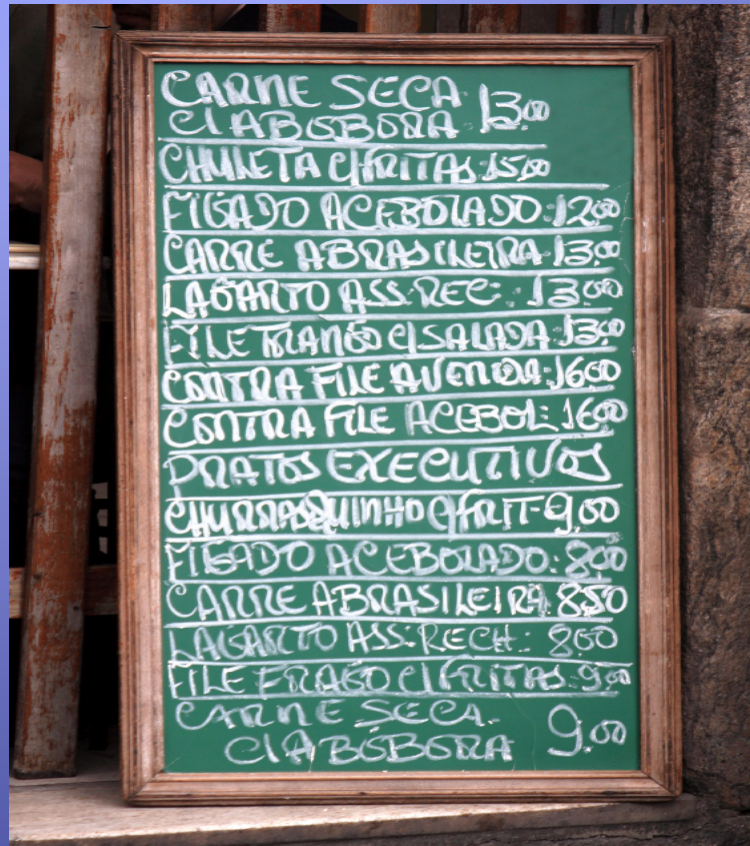 CARNE SECA 13.00
C/ ABOBORA
CHULETA C/FRITAS: 15,00
FIGADO ACEBOLADO: 12.00
CARRE A BRASILEIRA 13.00
LAGARTO ASS. REC: 13.00
FILE FRANGO C/SALADA 13.00
CONTRA FILE AVENIDA: 16.00
CONTRA FILE ACEBOL: 16.00
PRATOS EXECUTIVOS
CHURRASQUINHO C/FRIT- 9,00
FIGADO ACEBOLADO: 8.00
CARRE A BRASILEIRA 8.50
LAGARTO ASS: RECH: 8.00
FILE FRAGO C/FRITAS: 9.00
CARNE SECA. 9.00
C/ABOBORA